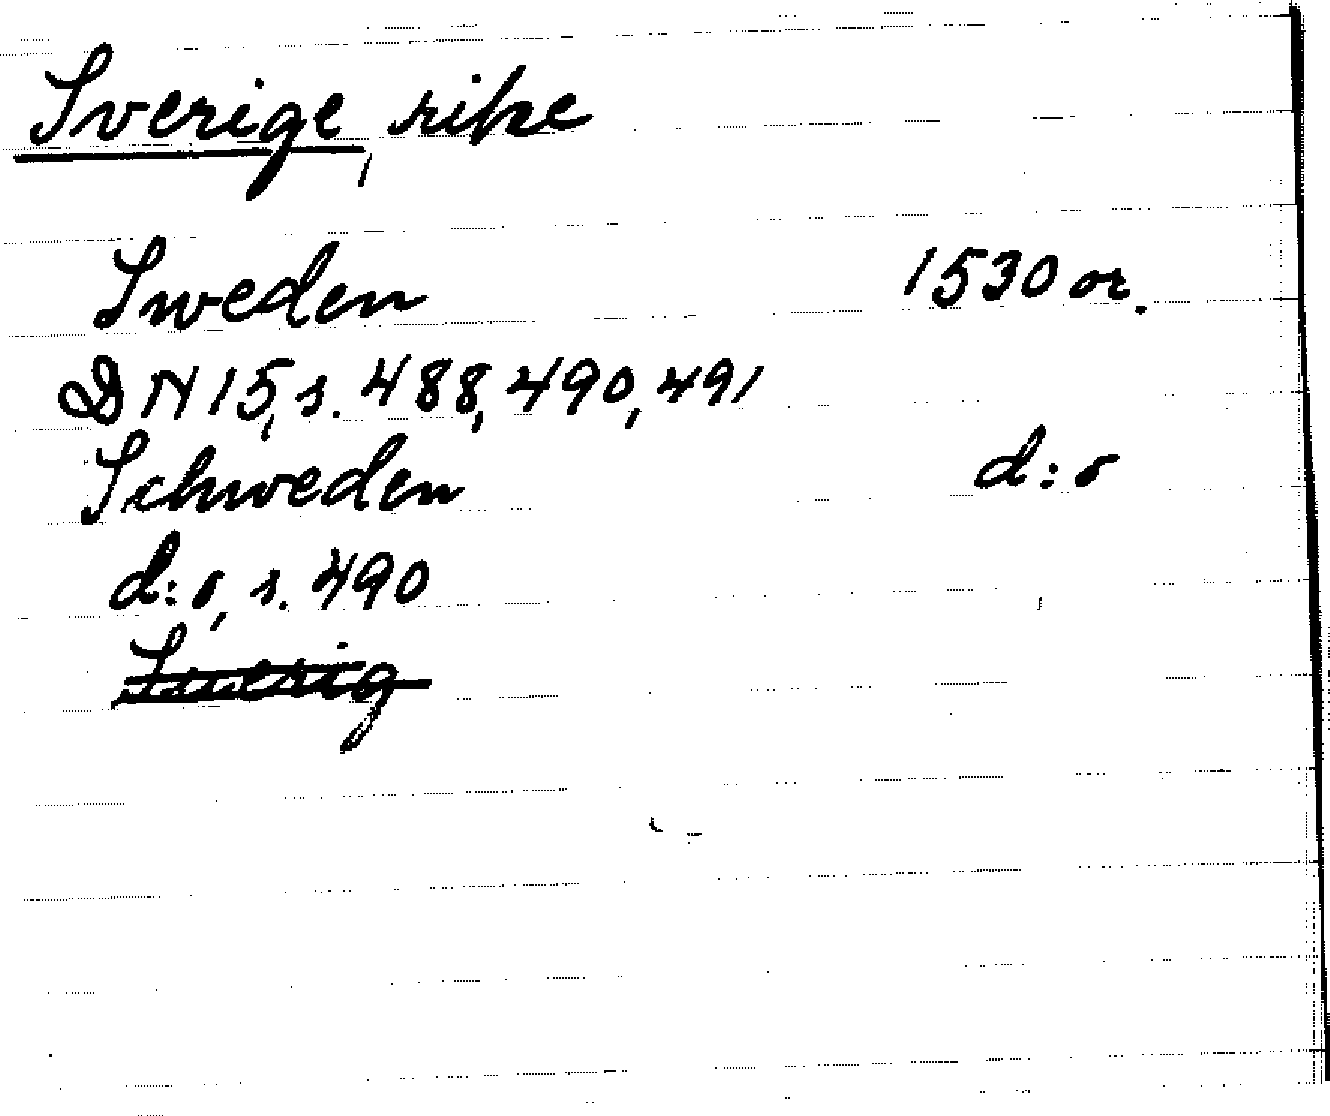 Sverige, rike
Sweden 1530 or.
DN 15, s. 488, 490, 491
Schweden d:o
d:o, s. 490